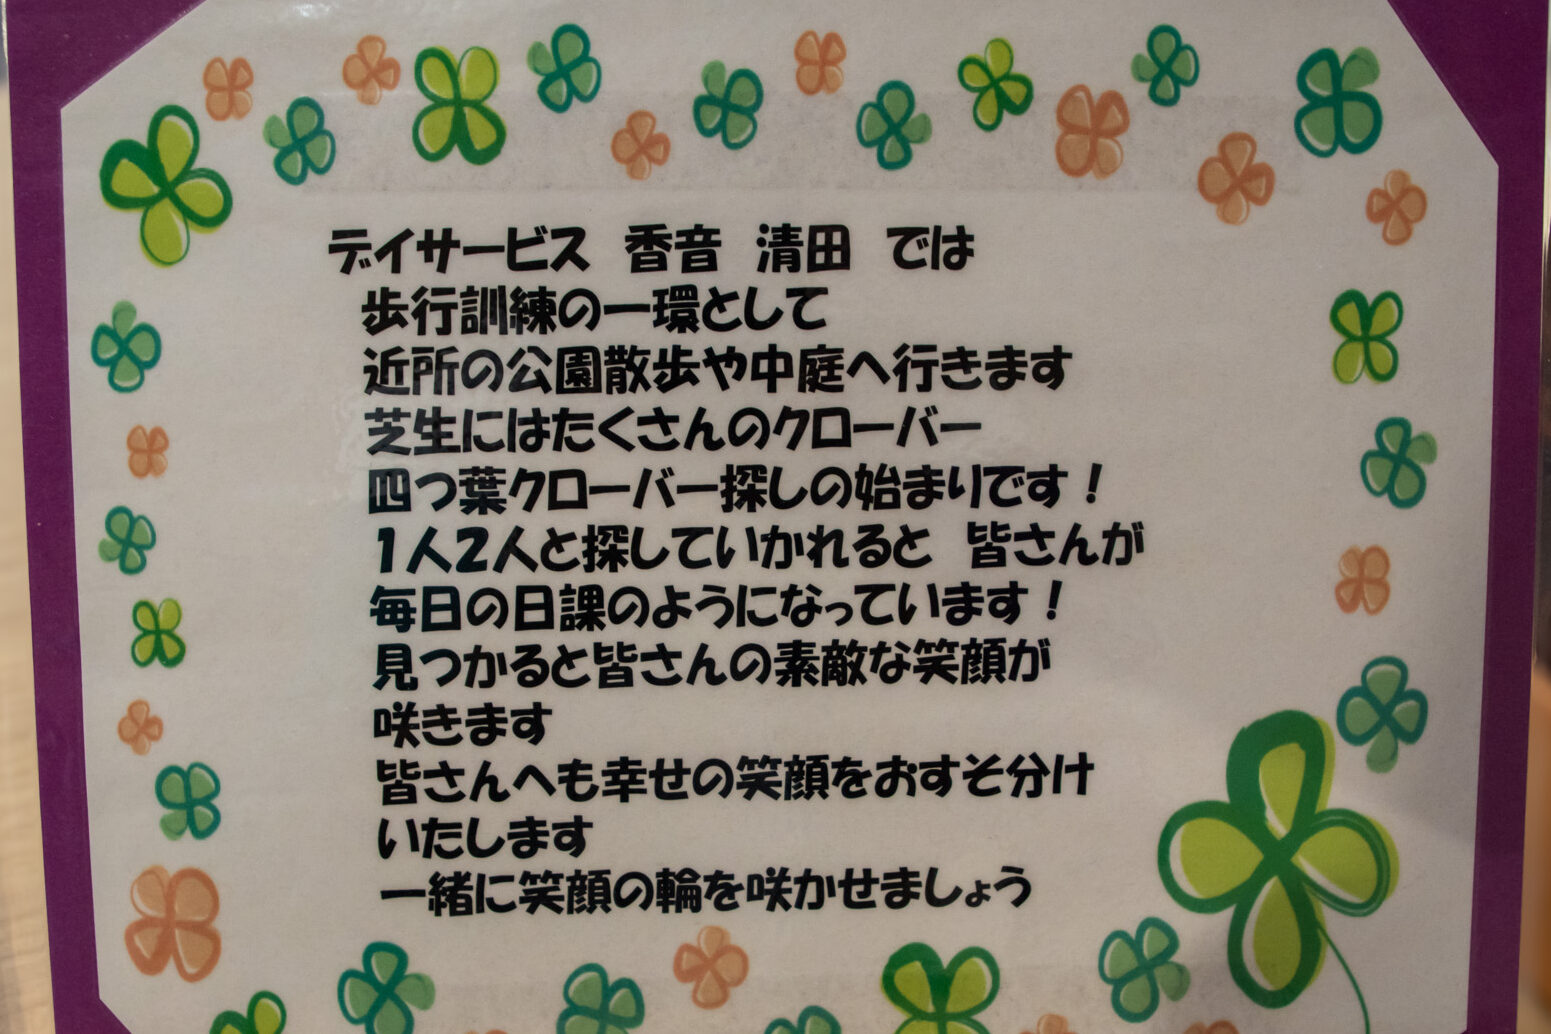 デイサービス　香音　清田　では
歩行訓練の一環として
近所の公園散歩や中庭へ行きます
芝生にはたくさんのクローバー
四つ葉クローバー探しの始まりです！
1人2人と探していかれると　皆さんが
毎日の日課のようになっています！
見つかると皆さんの素敵な笑顔が
咲きます
皆さんへも幸せの笑顔をおすそ分け
いたします
一緒に笑顔の輪を咲かせましょう